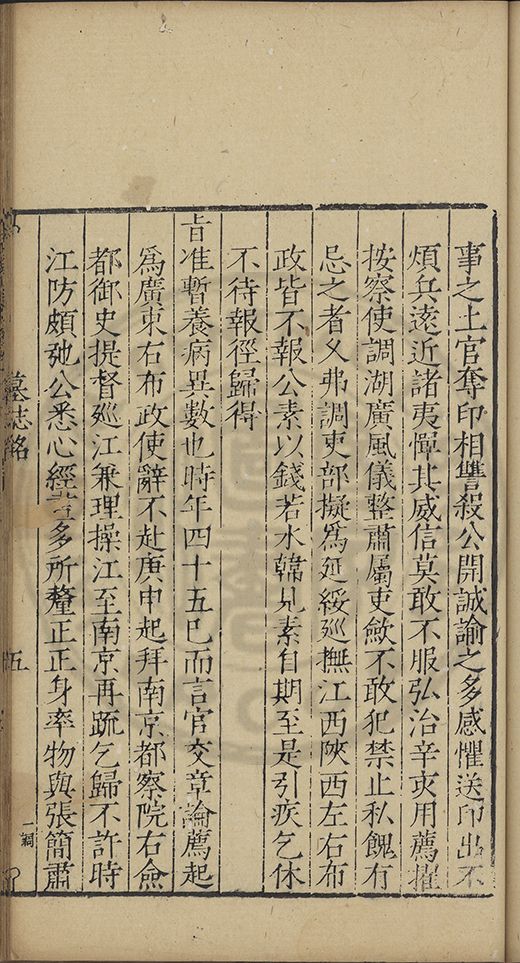 事之土官奪印相讐殺公開誠諭之多感懼送印出不
煩兵遠近諸夷憚其威信莫敢不服弘治辛亥用薦擢
按察使調湖廣風儀整肅屬吏斂不敢犯禁止私餽有
忌之者乂弗調吏部擬爲延綏廵撫江西陜西左右布
政皆不報公素以錢若水韓見素自期至是引疾乞休
不待報徑歸得
旨准暫養病異數也時年四十五巳而言官交章論薦起
爲廣東右布政使辭不赴庚申起拜南京都察院右僉
都御史提督廵江兼理操江至南京再疏乞歸不許時
江防頗弛公悉心經畫多所釐正正身率物與張簡肅
墓志銘
五